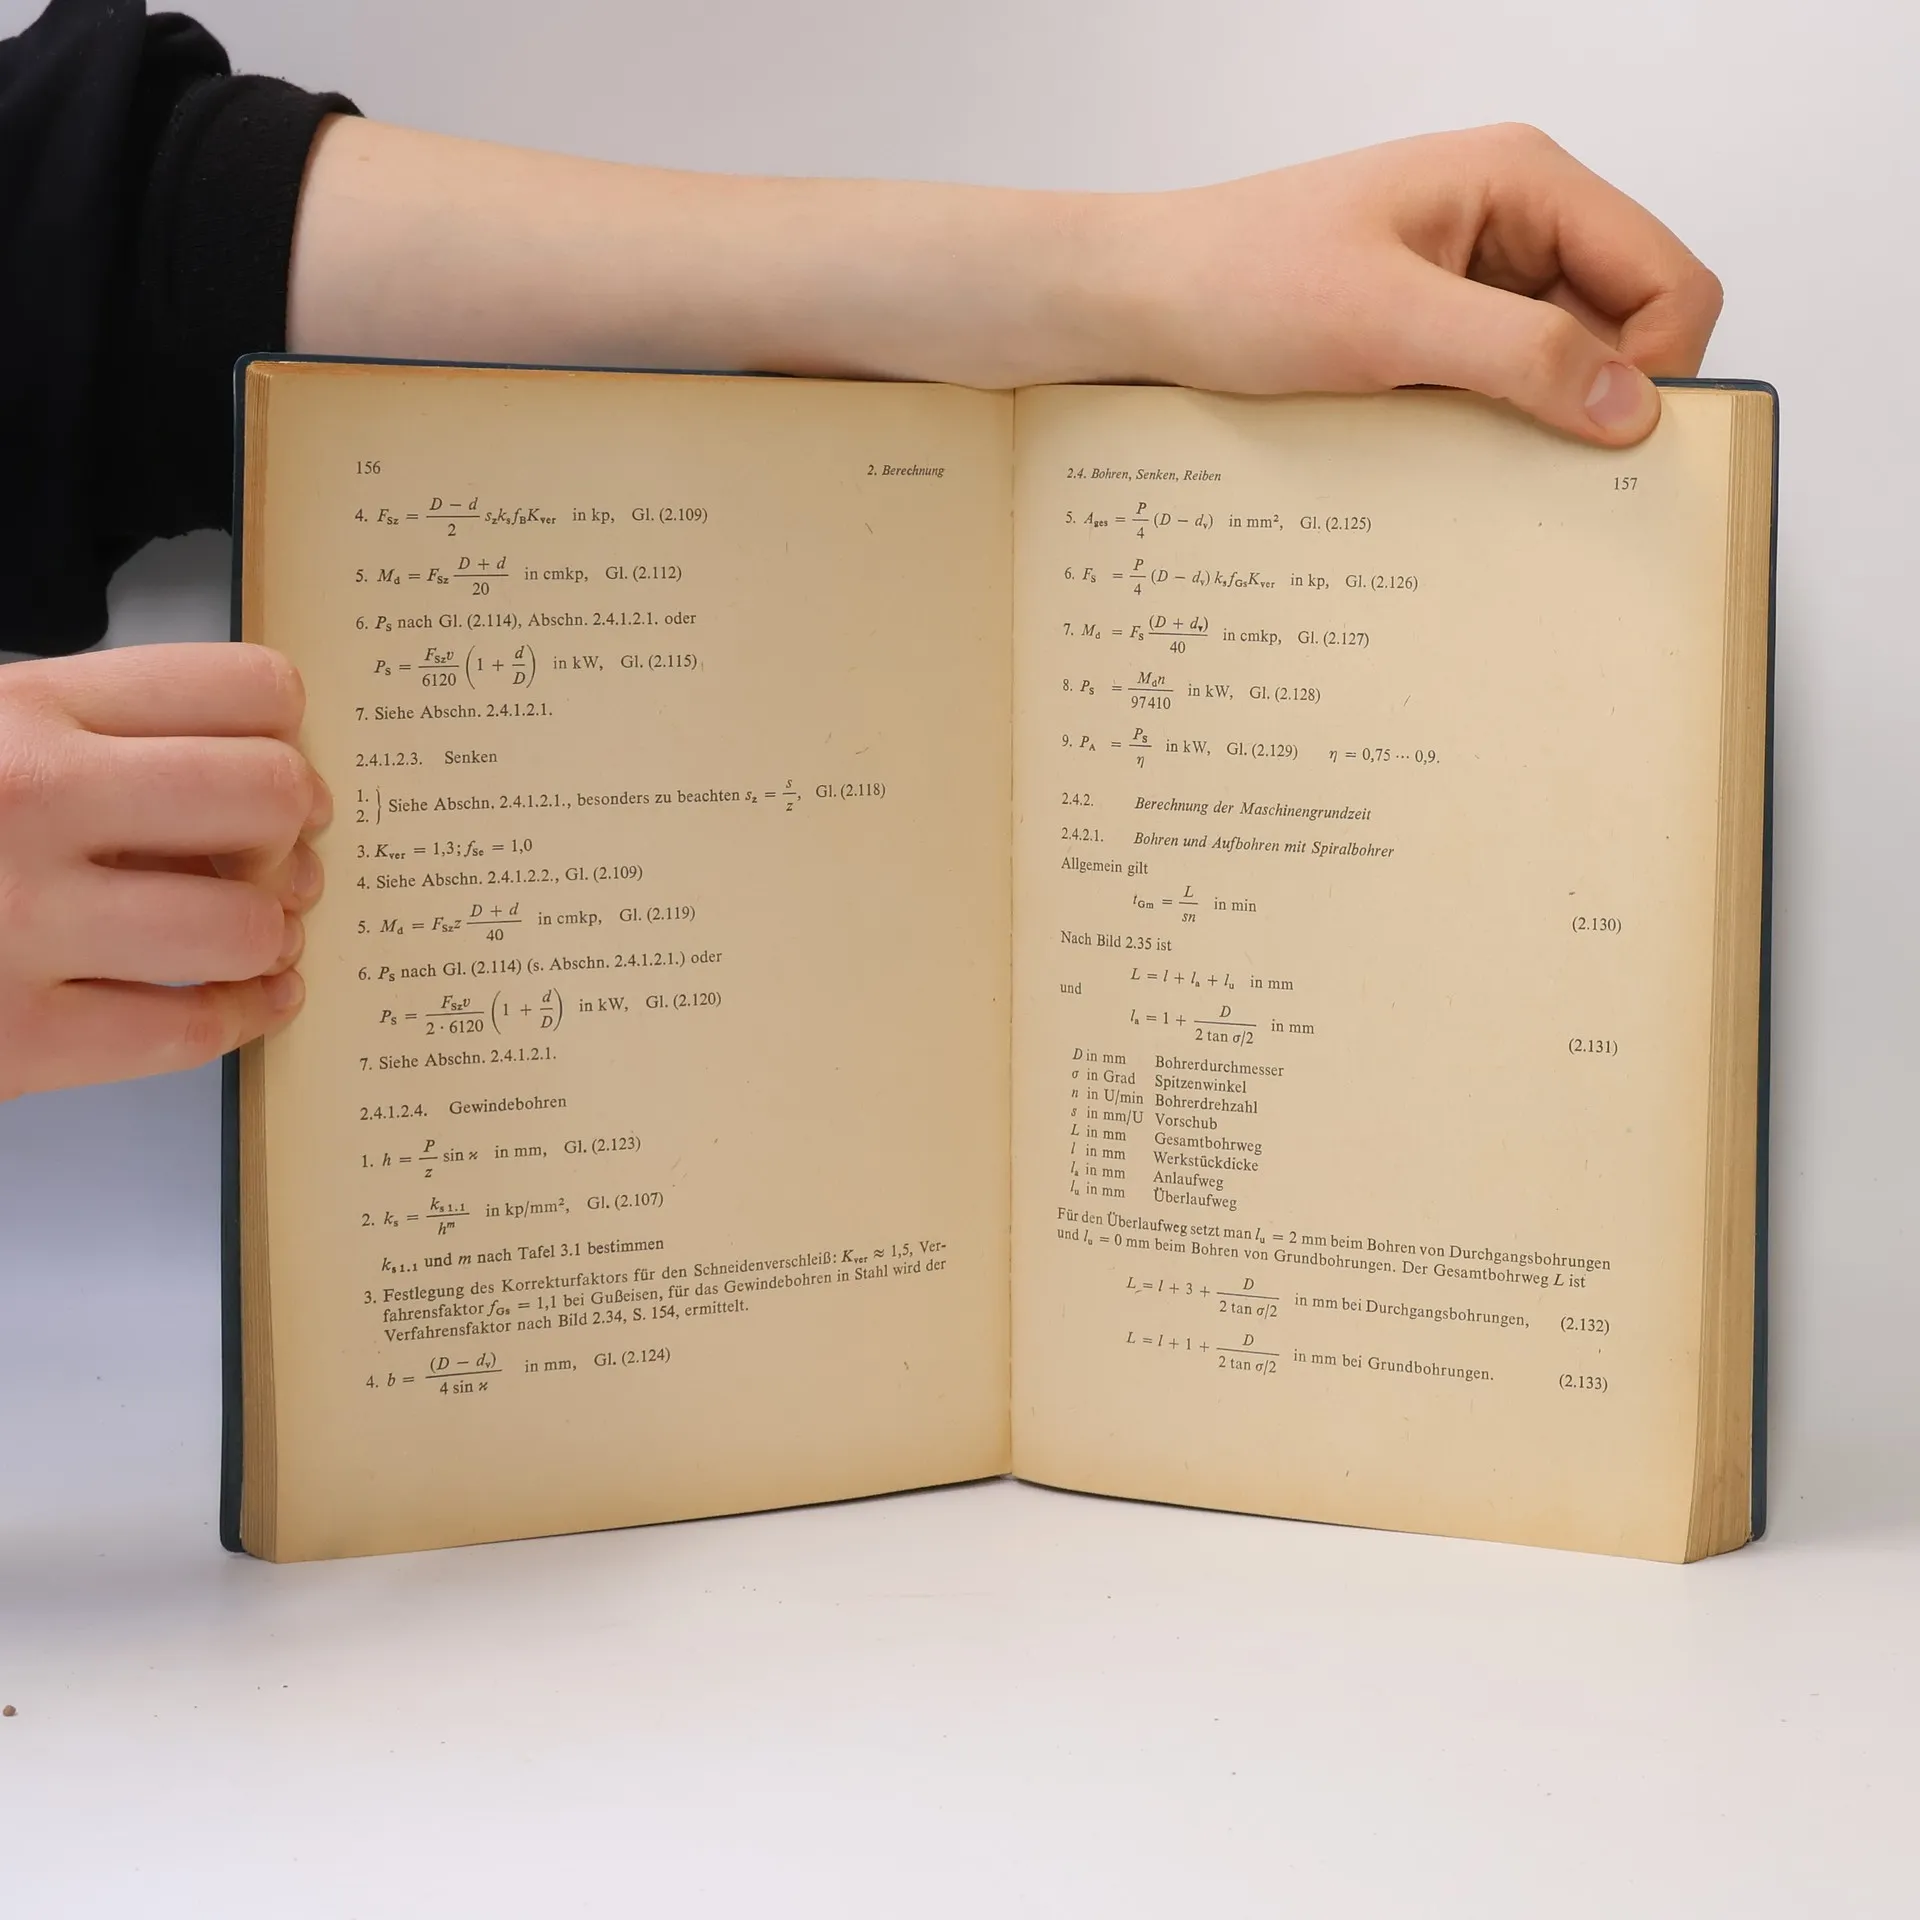 156 2. Berechnung
4. F_Sz = (D − d)/2 s_z k_s f_B K_ver in kp, Gl. (2.109)
5. M_d = F_Sz (D + d)/20 in cmkp, Gl. (2.112)
6. P_S nach Gl. (2.114), Abschn. 2.4.1.2.1. oder
P_S = F_Sz v/6120 (1 + d/D) in kW, Gl. (2.115)
7. Siehe Abschn. 2.4.1.2.1.
2.4.1.2.3. Senken
1.
2. } Siehe Abschn. 2.4.1.2.1., besonders zu beachten s_z = s/z, Gl. (2.118)
3. K_ver = 1,3; f_Se = 1,0
4. Siehe Abschn. 2.4.1.2.2., Gl. (2.109)
5. M_d = F_Sz z (D + d)/40 in cmkp, Gl. (2.119)
6. P_S nach Gl. (2.114) (s. Abschn. 2.4.1.2.1.) oder
P_S = F_Sz v/(2 · 6120) (1 + d/D) in kW, Gl. (2.120)
7. Siehe Abschn. 2.4.1.2.1.
2.4.1.2.4. Gewindebohren
1. h = P/z sin ϰ in mm, Gl. (2.123)
2. k_s = k_s1.1/h^m in kp/mm², Gl. (2.107)
k_s1.1 und m nach Tafel 3.1 bestimmen
3. Festlegung des Korrekturfaktors für den Schneidenverschleiß: K_ver ≈ 1,5, Ver-
fahrensfaktor f_Gs = 1,1 bei Gußeisen, für das Gewindebohren in Stahl wird der
Verfahrensfaktor nach Bild 2.34, S. 154, ermittelt.
4. b = (D − d_v)/(4 sin ϰ) in mm, Gl. (2.124)
2.4. Bohren, Senken, Reiben 157
5. A_ges = P/4 (D − d_v) in mm², Gl. (2.125)
6. F_S = P/4 (D − d_v) k_s f_Gs K_ver in kp, Gl. (2.126)
7. M_d = F_S (D + d_v)/40 in cmkp, Gl. (2.127)
8. P_S = M_d n/97410 in kW, Gl. (2.128)
9. P_A = P_S/η in kW, Gl. (2.129) η = 0,75 ··· 0,9.
2.4.2. Berechnung der Maschinengrundzeit
2.4.2.1. Bohren und Aufbohren mit Spiralbohrer
Allgemein gilt
t_Gm = L/sn in min (2.130)
Nach Bild 2.35 ist
L = l + l_a + l_u in mm
und
l_a = 1 + D/(2 tan σ/2) in mm (2.131)
D in mm Bohrerdurchmesser
σ in Grad Spitzenwinkel
n in U/min Bohrerdrehzahl
s in mm/U Vorschub
L in mm Gesamtbohrweg
l in mm Werkstückdicke
l_a in mm Anlaufweg
l_u in mm Überlaufweg
Für den Überlaufweg setzt man l_u = 2 mm beim Bohren von Durchgangsbohrungen
und l_u = 0 mm beim Bohren von Grundbohrungen. Der Gesamtbohrweg L ist
L = l + 3 + D/(2 tan σ/2) in mm bei Durchgangsbohrungen, (2.132)
L = l + 1 + D/(2 tan σ/2) in mm bei Grundbohrungen. (2.133)